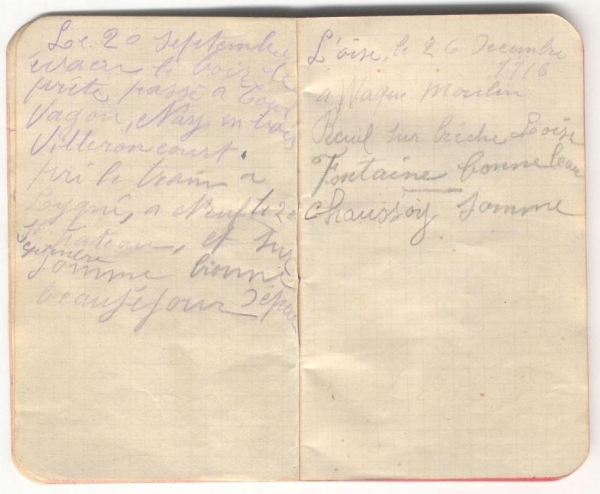 Le 20 septembre
évacué le bois le
prête passé à
Vagon, Nay, en
Villeroncourt.
pri le train a
Lygné, a Neuf le 20
Septembre
chateau, et sur
Somme bionne
beauséjour
L'oise, le 26 Decembre
1916
a Maque Moulin
Reuil sur brèche Loise
Fontaine bonne leau
Chaussoy Somme